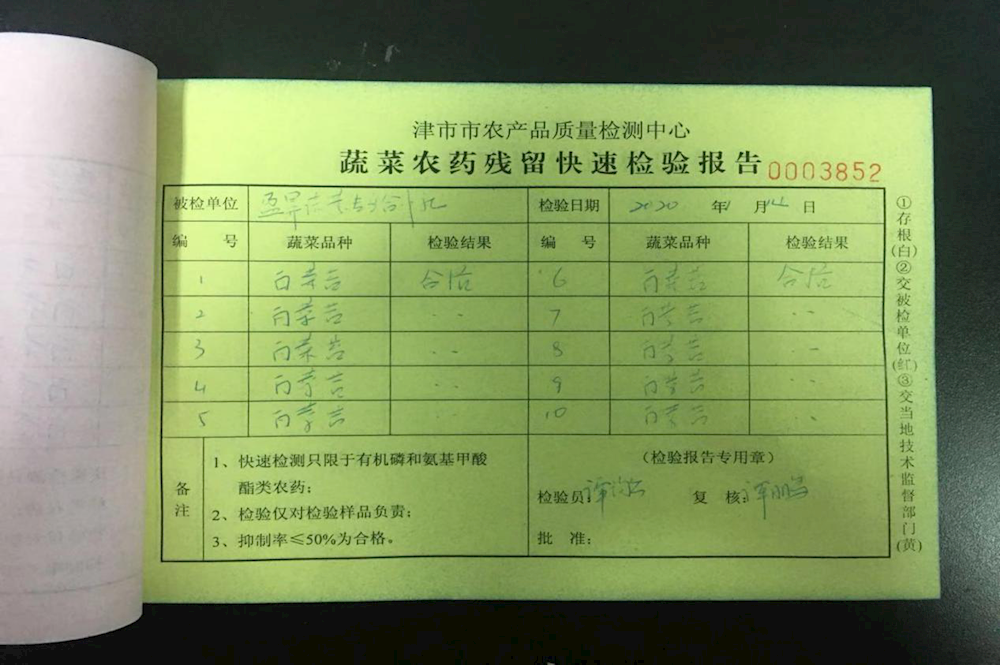 津市市农产品质量检测中心
蔬菜农药残留快速检验报告 0003852
被检单位 检验日期 2020 年 月 14 日
编号 蔬菜品种 检验结果 编号 蔬菜品种 检验结果
1 白菜苔 合格 6 白菜苔 合格
2 白菜苔 ·· 7 白菜苔 ··
3 白菜苔 ·· 8 白菜苔 ··
4 白菜苔 ·· 9 白菜苔 ··
5 白菜苔 ·· 10 白菜苔 ··
备注
1、快速检测只限于有机磷和氨基甲酸
酯类农药;
2、检验仅对检验样品负责;
3、抑制率≤50%为合格。
(检验报告专用章)
检验员: 复核:
批准:
①存根(白)②交被检单位(红)③交当地技术监督部门(黄)